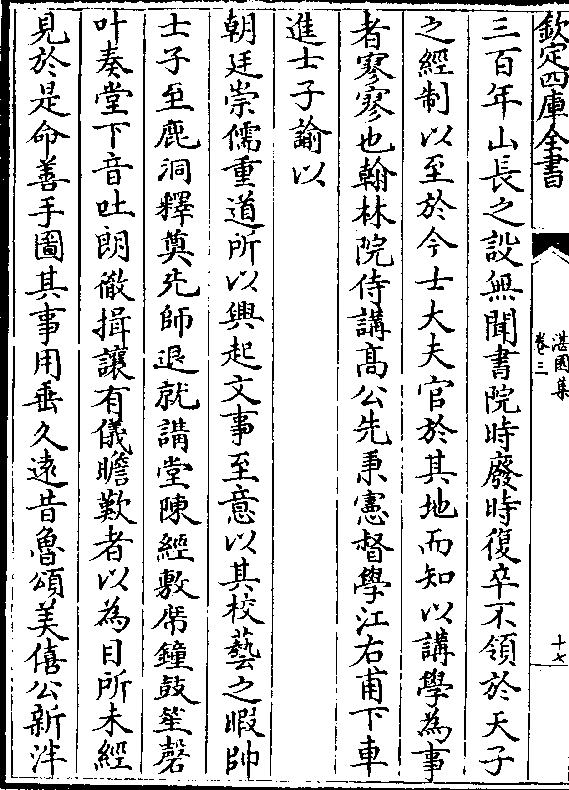 欽定四庫全書
湛園集
卷三
十七
三百年山長之設無聞書院時廢時復卒不領於天子
之經制以至於今士大夫官於其地而知以講學為事
者寥寥也翰林院侍講高公先秉憲督學江右甫下車
進士子諭以
朝廷崇儒重道所以興起文事至意以其校藝之暇帥
士子至鹿洞釋奠先師退就講堂陳經敷席鐘鼓笙磬
叶奏堂下音吐朗徹揖讓有儀瞻歎者以為目所未經
見於是命善手圖其事用垂久遠昔魯頌美僖公新泮